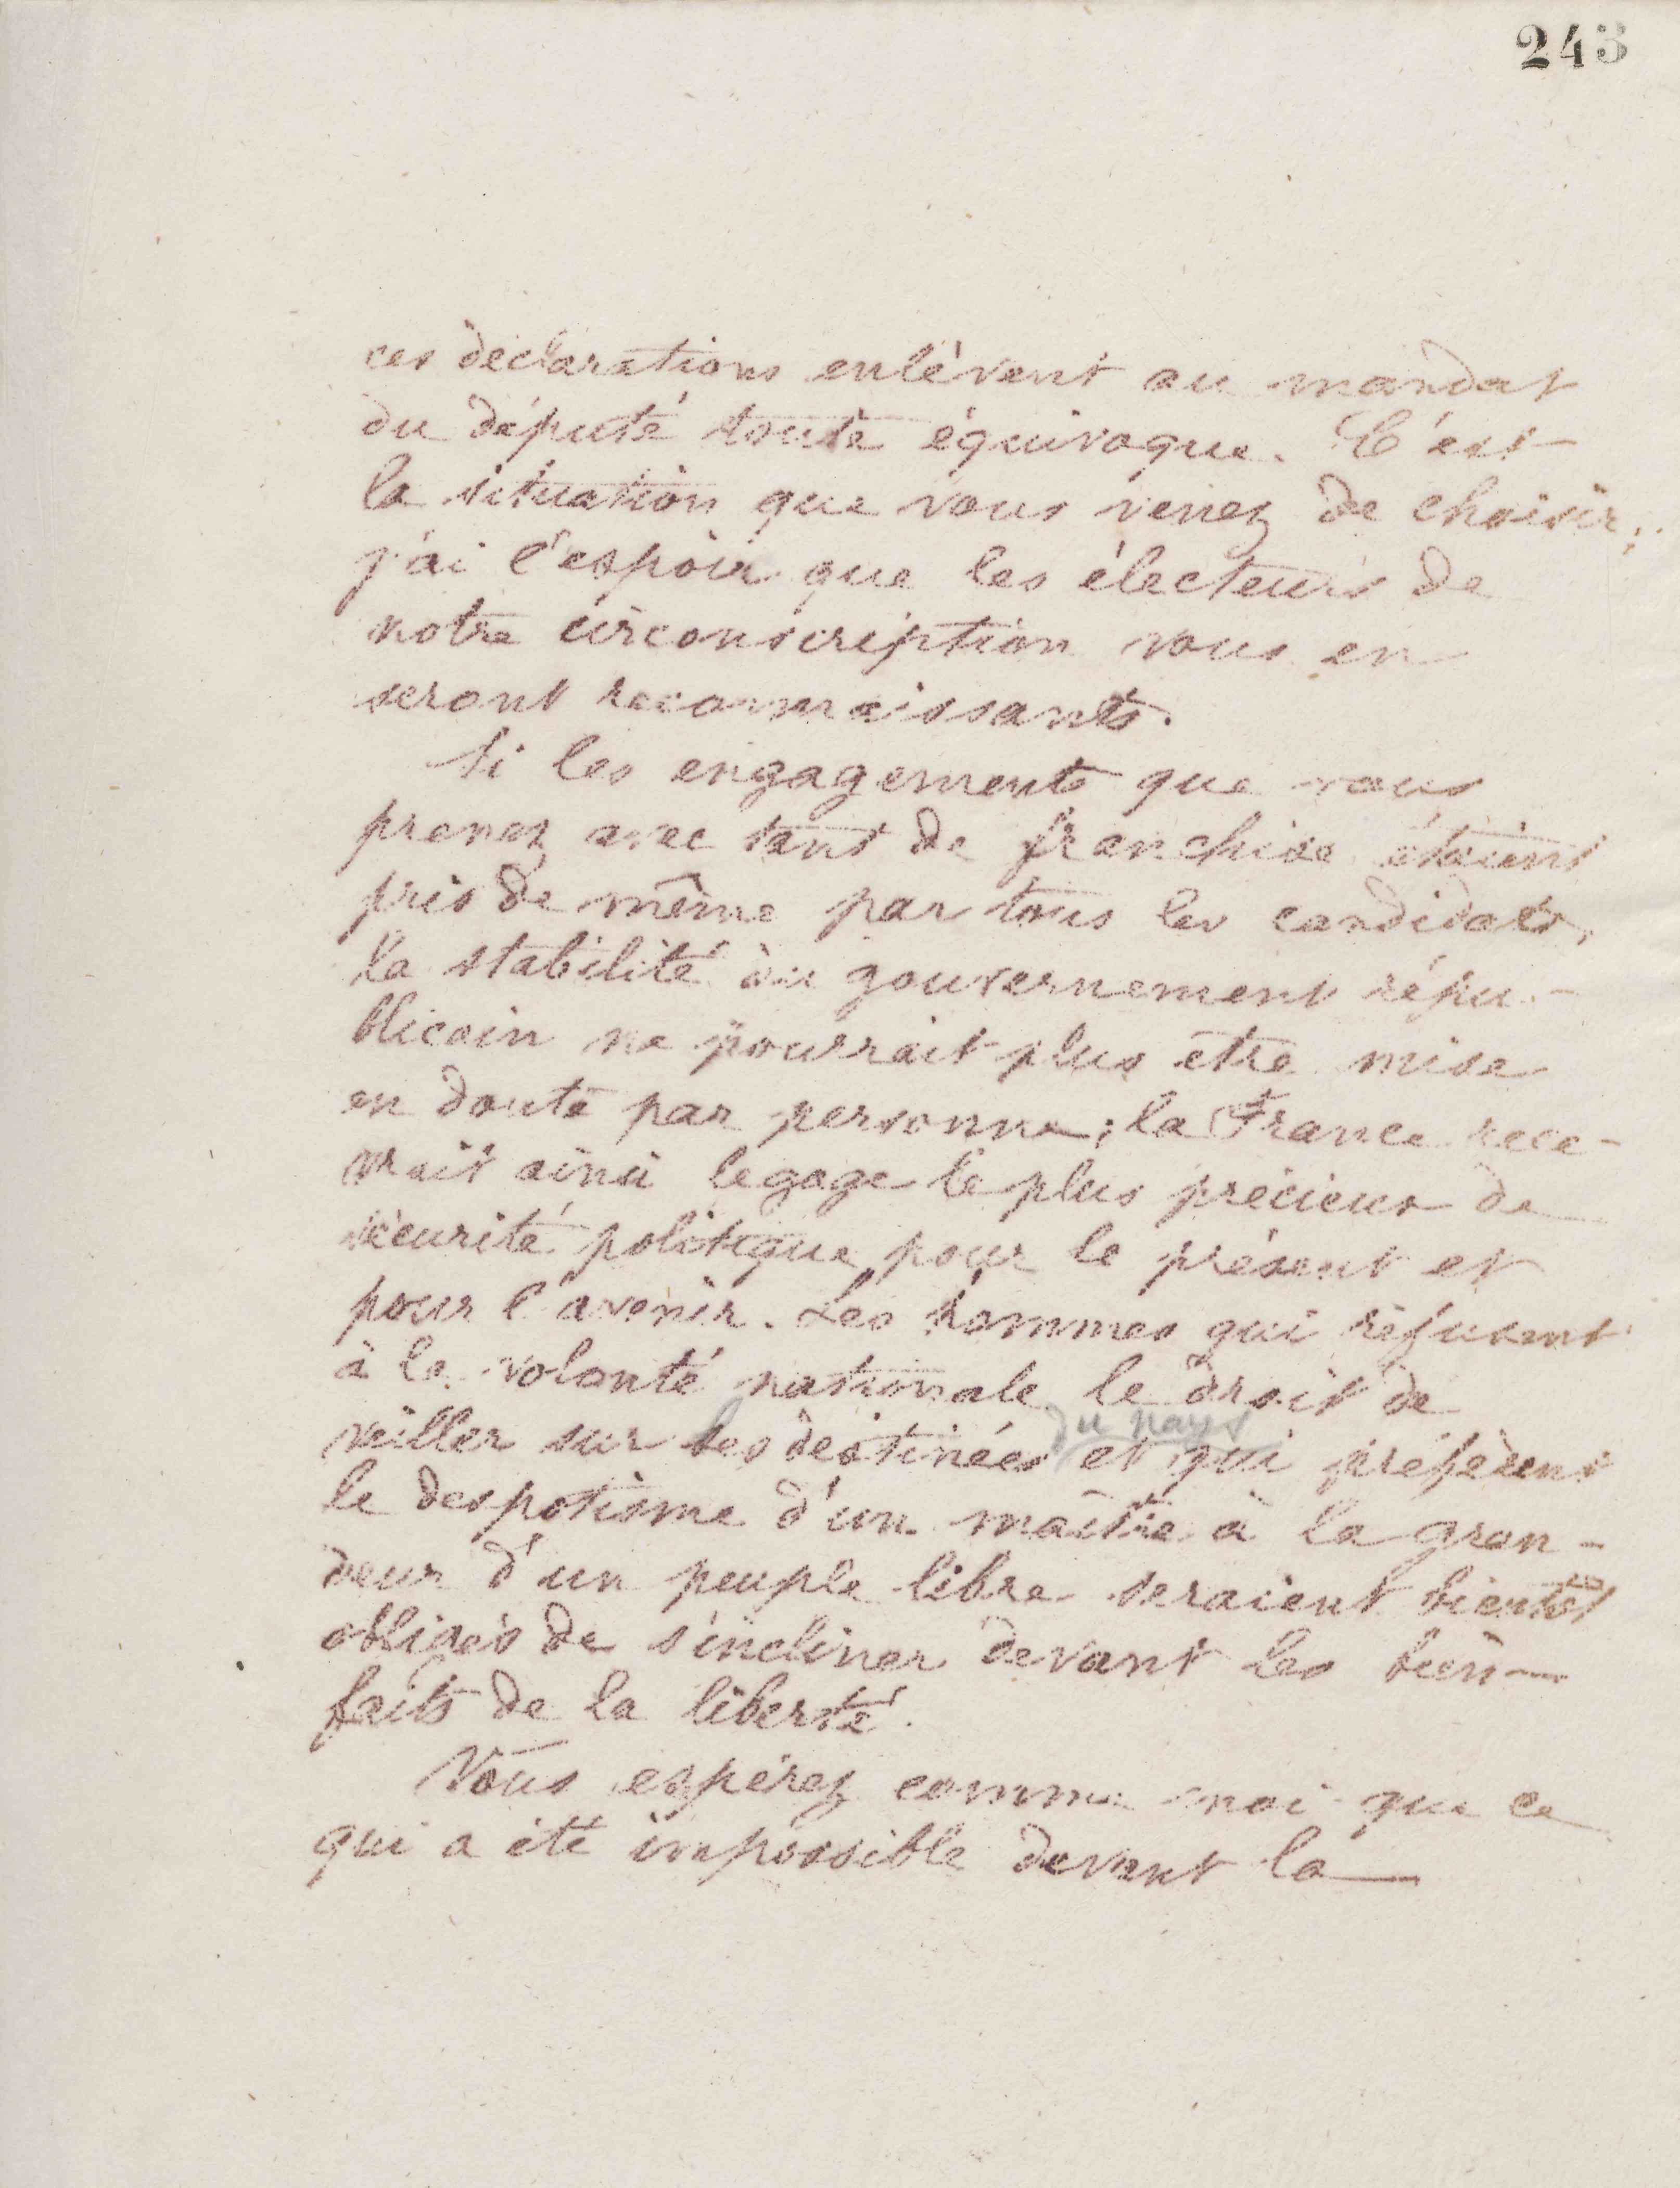 243
ces déclarations enlèvent au mandat
du député toute équivoque. C'est
la situation que vous venez de choisir;
j'ai l'espoir que les électeurs de
notre circonscription vous en
seront reconnaissants.
Si les engagements que vous
prenez avec tant de franchise étaient
pris de même par tous les candidats,
la stabilité du gouvernement répu-
blicain ne pourrait plus être mise
en doute par personne; la France rece-
vrait ainsi le gage le plus précieux de
sécurité politique pour le présent et
pour l'avenir. Les hommes qui refusent
à la volonté nationale le droit de
du pays
veiller sur les destinées et qui préfèrent
le despotisme d'un maître à la gran-
deur d'un peuple libre seraient bientôt
obligés de s'incliner devant les bien-
faits de la liberté.
Vous espérez comme moi que ce
qui a été impossible devant la